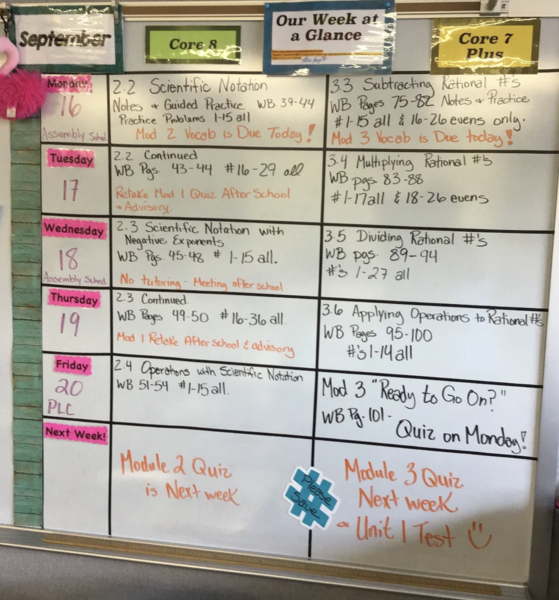 September
Core 8
Our Week at
a Glance
Core 7
Plus
Monday
16
Assembly Sched
2.2 Scientific Notation
Notes & Guided Practice WB 39-44
Practice Problems 1-15 all
Mod 2 Vocab is Due Today!
3.3 Subtracting Rational #'s
WB Pages 75-82 Notes & Practice
#1-15 all & 16-26 evens only.
Mod 3 Vocab is Due today!
Tuesday
17
2.2 Continued
WB Pgs. 43-44 #16-29 all
Retake Mod 1 Quiz After School
& Advisory.
3.4 Multiplying Rational #'s
WB pgs 83-88
#1-17 all & 18-26 evens
Wednesday
18
Assembly Sched
2.3 Scientific Notation with
Negative Exponents
WB Pgs 45-48 # 1-15 all.
No tutoring - Meeting after school
3.5 Dividing Rational #'s
WB pgs. 89-94
#'s 1-27 all
Thursday
19
2.3 Continued
WB Pages 49-50 #16-36 all
Mod 1 Retake After School & advisory
3.6 Applying Operations to Rational #'s
WB Pages 95-100
#'s 1-14 all
Friday
20
PLC
2.4 Operations with Scientific Notation
WB 51-54 #1-15 all
Mod 3 "Ready to Go On?"
WB Pg. 101-
Quiz on Monday!
Next Week!
Module 2 Quiz
is Next week
Please
Save
Module 3 Quiz
Next week
& Unit 1 Test